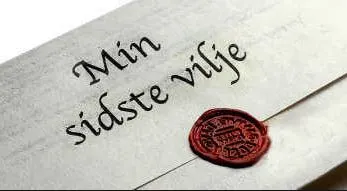 Min
sidste vilje